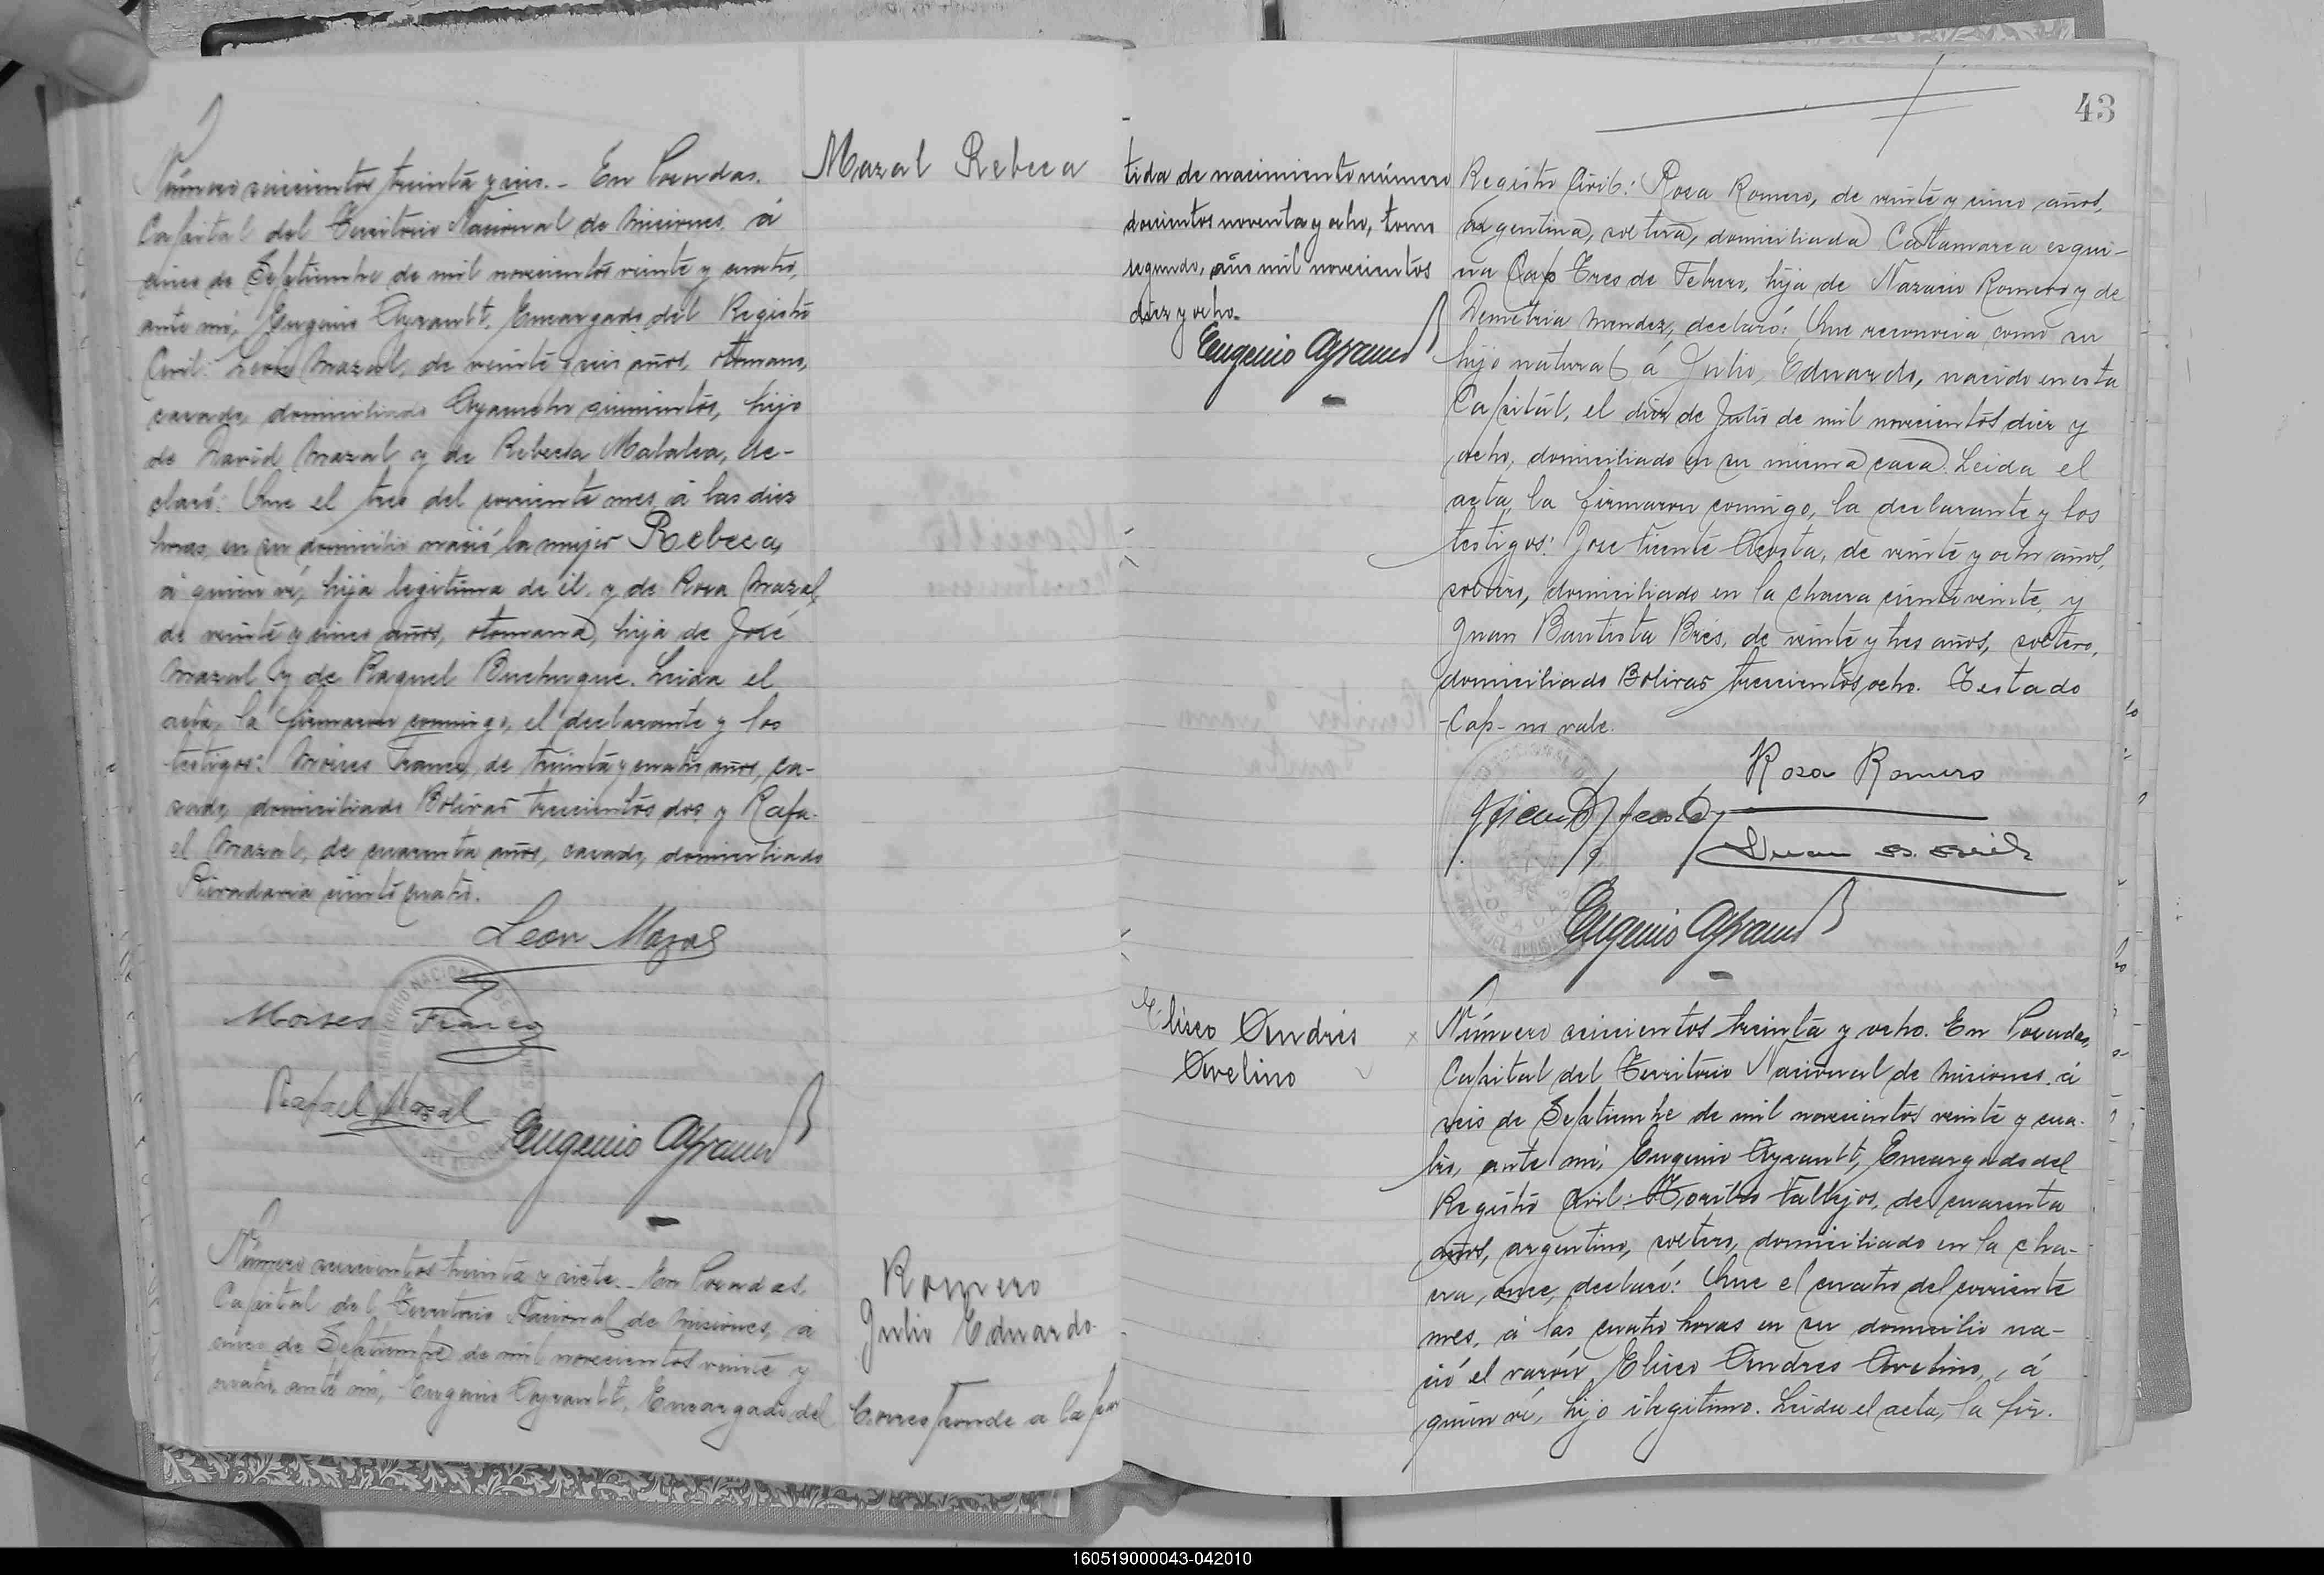 Mazal Rebeca
Número seiscientos treinta y seis. - En Posadas,
Capital del Territorio Nacional de Misiones, á
cinco de Septiembre de mil novecientos veinte y cuatro,
ante mí, Eugenio Ayrault, Encargado del Registro
Civil: León Mazal, de veinte y seis años, otomano,
casado, domiciliado Ayacucho quinientos, hijo
de David Mazal y de Rebeca Matalon, de-
claró: Que el tres del corriente mes, á las diez
horas, en su domicilio nació la mujer Rebeca,
á quien ví, hija legítima de él y de Rosa Mazal,
de veinte y cinco años, otomana, hija de José
Mazal y de Raquel. Leida el
acta, la firmaron conmigo, el declarante y los
testigos: Moises Franco, de treinta y cuatro años, ca-
sado, domiciliado Bolívar trescientos dos y Rafa-
el Mazal, de cuarenta años, casado, domiciliado
Rivadavia ciento cuatro.
Leon Mazal
Moises Franco
Rafael Mazal
Eugenio Ayrault
Romero
Julio Eduardo
Número seiscientos treinta y siete. - En Posadas,
Capital del Territorio Nacional de Misiones, á
cinco de Septiembre de mil novecientos veinte y
cuatro, ante mí, Eugenio Ayrault, Encargado del
Corresponde a la par
43
tida de nacimiento número
doscientos noventa y ocho, tomo
segundo, año mil novecientos
diez y ocho.
Eugenio Ayrault
Registro Civil: Rosa Romero, de veinte y cinco años,
argentina, soltera, domiciliada Catamarca esqui-
na Cap Tres de Febrero, hija de Nazario Romero y de
Demetria Mendez, declaró: Que reconocia como su
hijo natural á Julio Eduardo, nacido en esta
Capital, el diez de Julio de mil novecientos diez y
ocho, domiciliado en su misma casa. Leida el
acta, la firmaron conmigo, la declarante y los
testigos: Jose Vicente Acosta, de veinte y ocho años,
soltero, domiciliado en la chacra ciento veinte, y
Juan Bautista Brés, de veinte y tres años, soltero,
domiciliado Bolivar trescientos ocho. Testado
-Cap- no vale.
Rosa Romero
J Vicente Acosta
Juan B.
Eugenio Ayrault
Eliseo Andrés
Avelino
Número seiscientos treinta y ocho. En Posadas,
Capital del Territorio Nacional de Misiones, á
seis de Septiembre de mil novecientos veinte y cua-
tro, ante mí, Eugenio Ayrault, Encargado del
Registro Civil: Toribio Vallejos, de cuarenta
años, argentino, soltero, domiciliado en la cha-
cra, once, declaró: Que el cuatro del corriente
mes, á las cuatro horas en su domicilio na-
ció el varón Eliseo Andres Avelino, á
quien ví, hijo ilegítimo. Leida el acta, la fir-
160519000043-042010